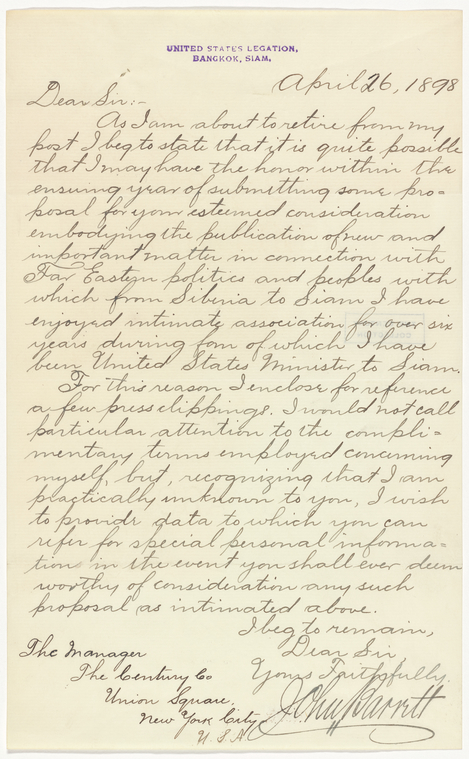 UNITED STATES LEGATION,
BANGKOK, SIAM.
April 26, 1898
Dear Sir:-
As I am about to retire from my
post I beg to state that it is quite possible
that I may have the honor within the
ensuing year of submitting some pro=
posal for your esteemed consideration
embodying the publication of new and
important matter in connection with
Far Eastern politics and peoples with
which from Siberia to Siam I have
enjoyed intimate association for over six
years during four of which I have
been United States Minister to Siam.
For this reason I enclose for reference
a few press clippings. I would not call
particular attention to the compli=
mentary terms employed concerning
myself, but, recognizing that I am
practically unknown to you, I wish
to provide data to which you can
refer for special personal informa=
tion in the event you shall ever deem
worthy of consideration any such
proposal as intimated above.
I beg to remain,
Dear Sir
Yours Faithfully.
John Barrett
The Manager
The Century Co
Union Square,
New York City
U.S.A.